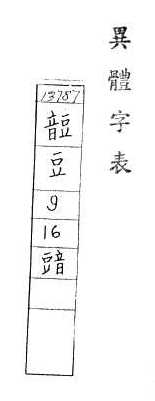 異體字表
13787
豆
9
16